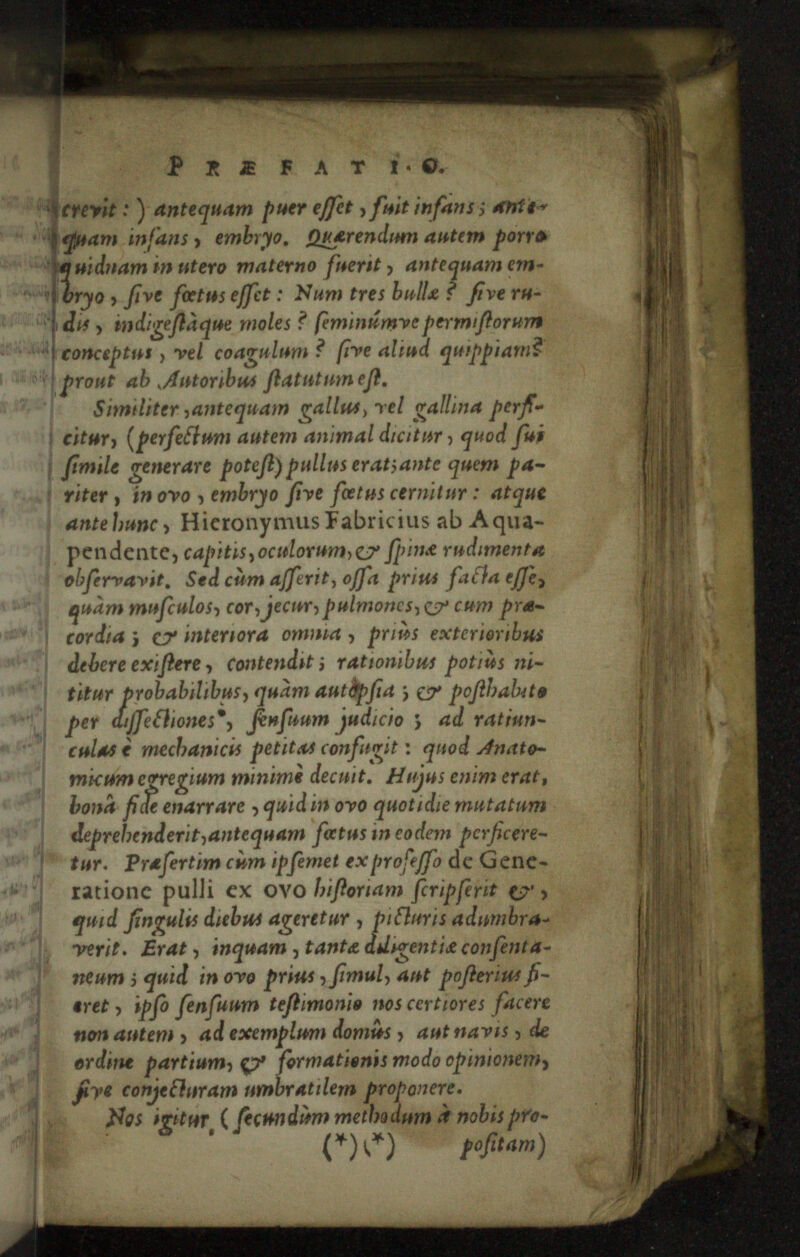 PRÆFATIO.
crevit : ) antequam puer eſſet , fuit infans ; ante-
quam infans , embryo. Quærendum autem porro
quidnam in utero materno fuerit , antequam em-
bryo , ſive fœtus eſſet : Num tres bullæ ? ſive ru-
dis , indigeſtàque moles ? ſeminúmve permiſtorum
conceptus , vel coagulum ? ſive aliud quippiam?
prout ab Autoribus ſtatutum eſt.
Similiter ,antequam gallus, vel gallina perfi-
citur, (perfectum autem animal dicitur , quod ſui
ſimile generare poteſt) pullus erat;ante quem pa-
riter , in ovo , embryo ſive fœtus cernitur : atque
ante hunc , Hieronymus Fabricius ab Aqua-
pendente, capitis,oculorum,& ſpinæ rudimenta
obſervavit. Sed cùm aſſerit, oſſa prius facta eſſe,
quàm muſculos, cor, jecur, pulmones, & cum præ-
cordia ; & interiora omnia , priùs exterioribus
debere exiſtere , contendit ; rationibus potiùs ni-
titur probabilibus, quàm autopſia ; & poſthabito
per diſſectiones*, ſenſuum judicio ; ad ratiun-
culas è mechanicis petitas confugit : quod Anato-
micum egregium minimè decuit. Hujus enim erat,
bonâ fide enarrare , quid in ovo quotidie mutatum
deprehenderit,antequam fœtus in eodem perficere-
tur. Præſertim cùm ipſemet ex profeſſo de Gene-
ratione pulli ex ovo hiſtoriam ſcripſerit & ,
quid ſingulis diebus ageretur , picturis adumbra-
verit. Erat , inquam , tantæ diligentiæ conſenta-
neum ; quid in ovo prius , ſimul, aut poſterius fi-
eret , ipſo ſenſuum teſtimonio nos certiores facere
non autem , ad exemplum domûs , aut navis , de
ordine partium, & formationis modo opinionem,
ſive conjecturam umbratilem proponere.
Nos igitur ( ſecundùm methodum à nobis pro-
(*)(*) poſitam)